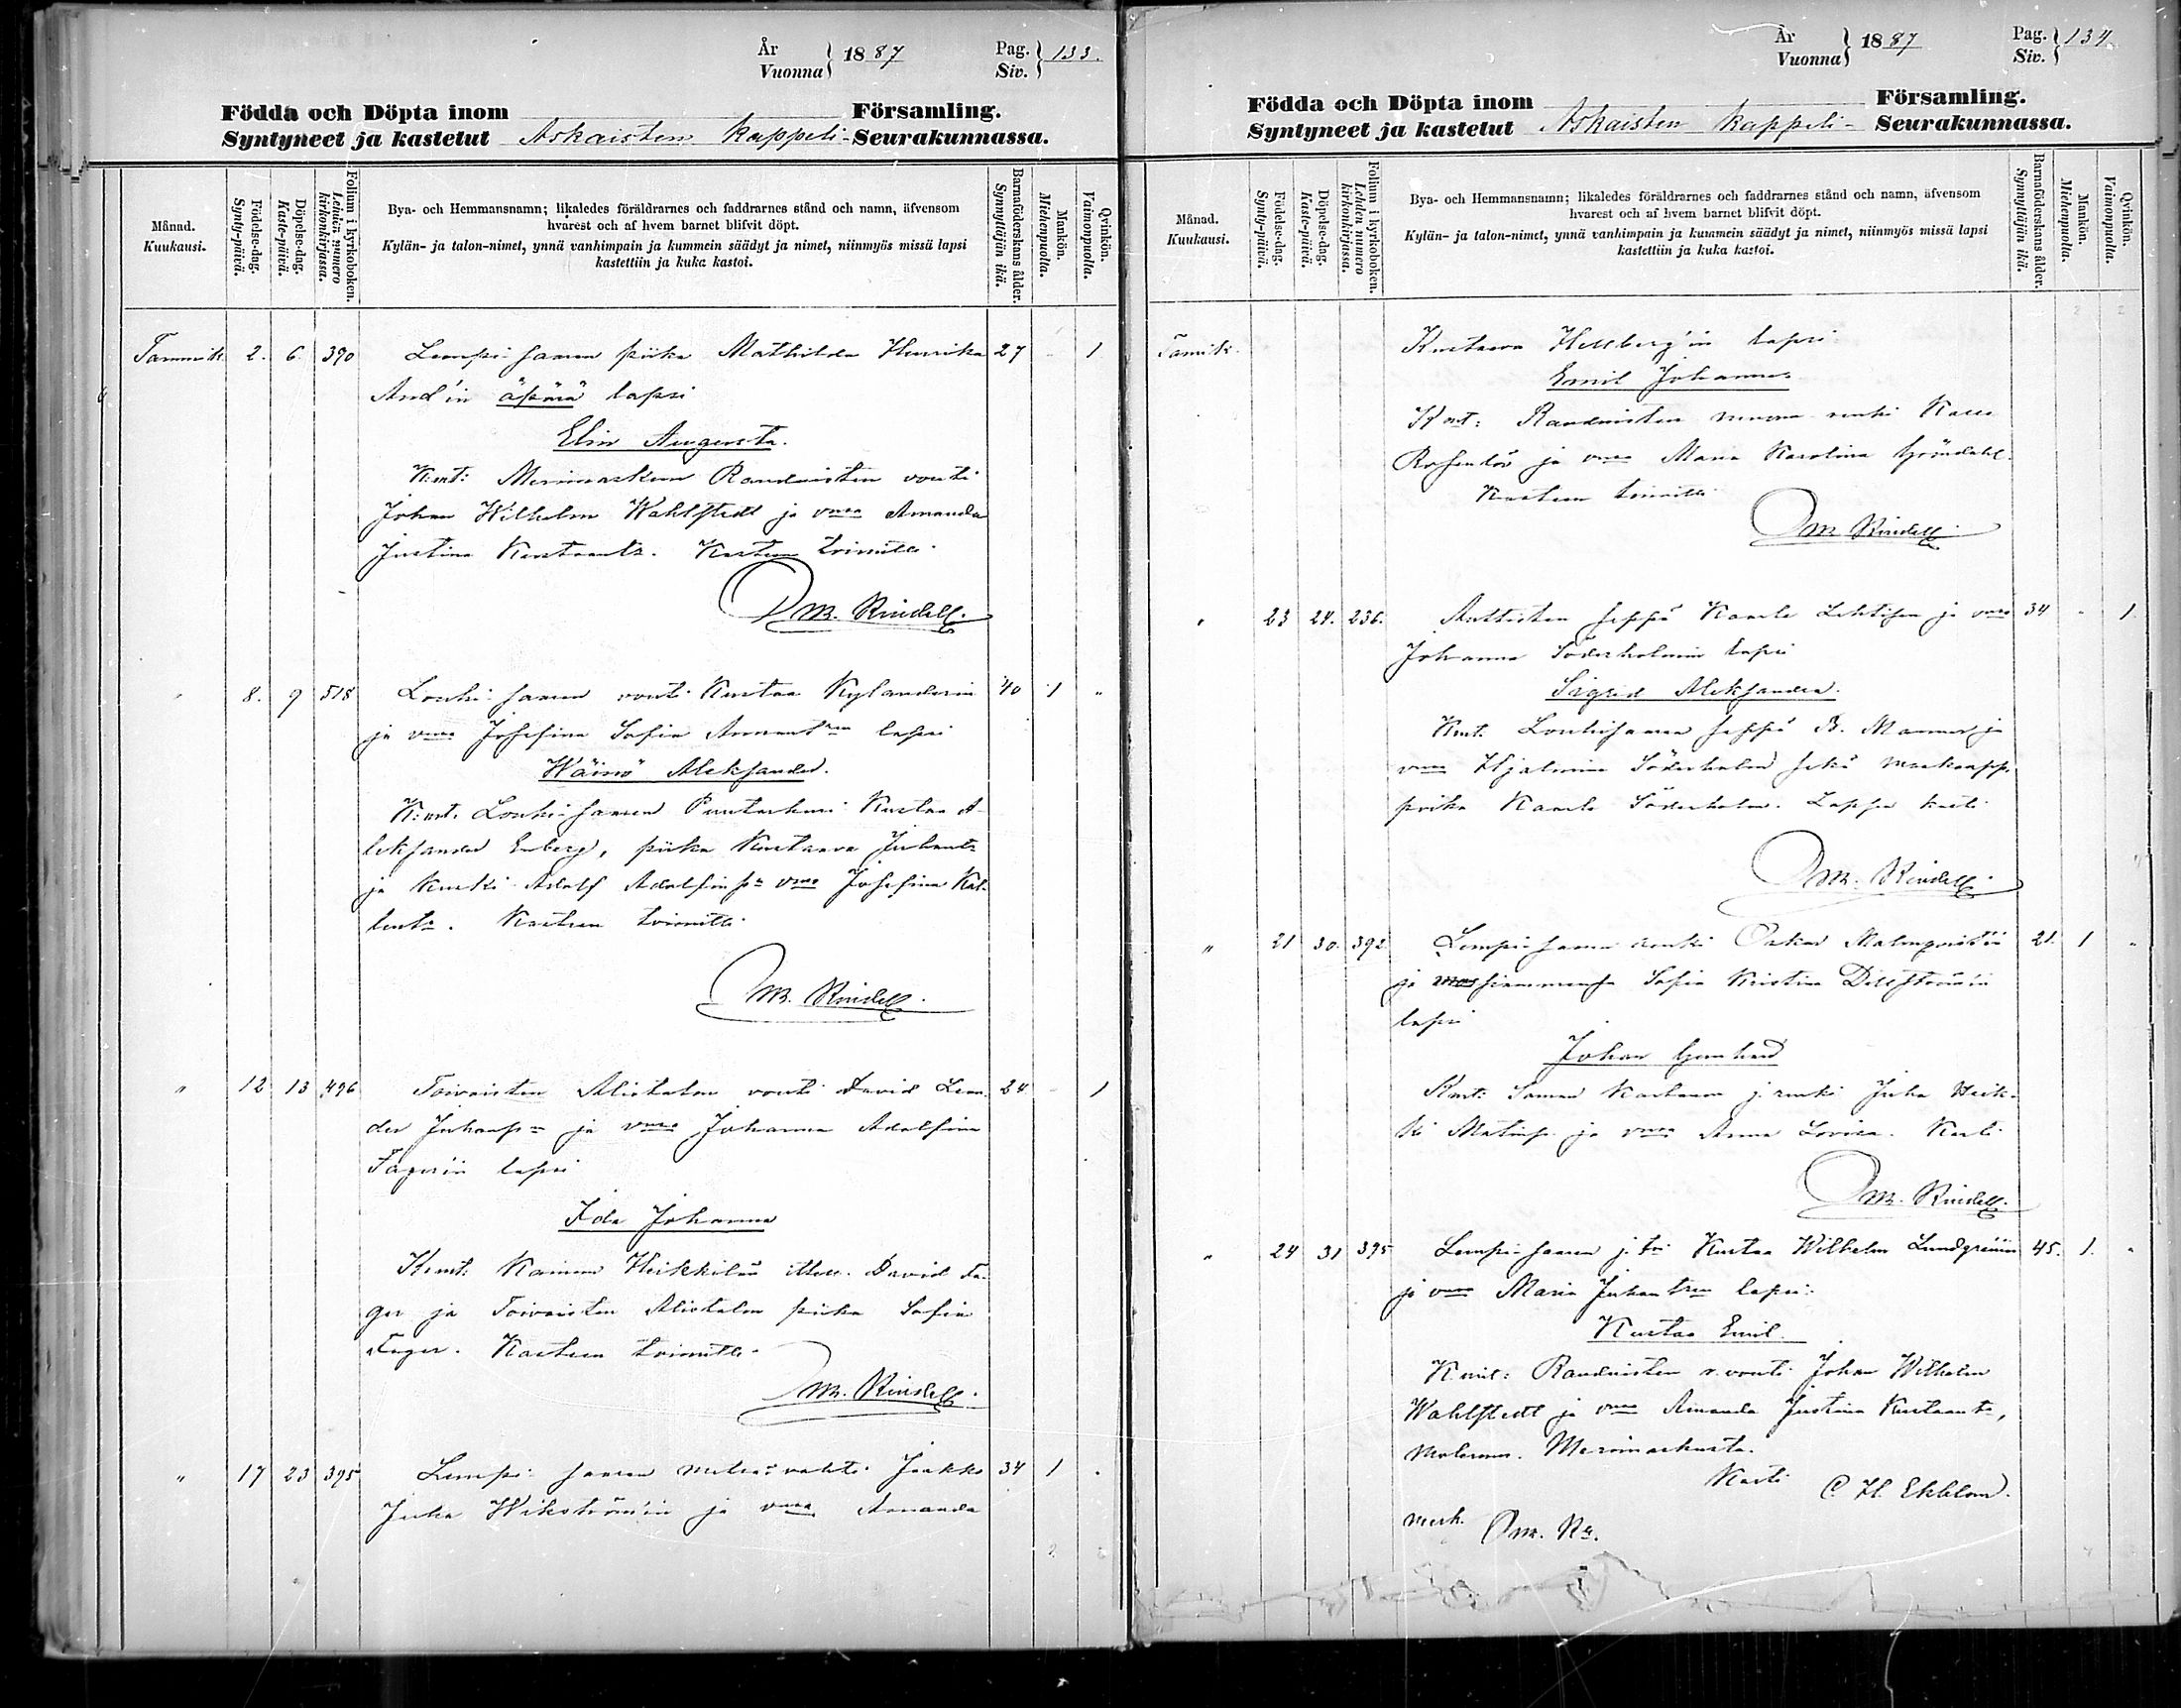 År
Vuonna } 1887
Pag.
Siv. } 133.
Födda och Döpta inom Församling.
Syntyneet ja kastetut Askaisten Kappeli- Seurakunnassa.
Månad.
Kuukausi.
Födelse-dag.
Synty-päivä.
Döpelse-dag.
Kaste-päivä.
Folium i kyrkoboken.
Lehden numero
kirkonkirjassa.
Bya- och Hemmansnamn; likaledes föräldrarnes och faddrarnes stånd och namn, äfvensom
hvarest och af hvem barnet blifvit döpt.
Kylän- ja talon-nimet, ynnä vanhimpain ja kummein säädyt ja nimet, niinmyös missä lapsi
kastettiin ja kuka kastoi.
Barnaföderskans ålder.
Synnyttäjän ikä.
Mankön.
Miehenpuolta.
Qvinkön.
Vaimonpuolta.
Tammik. 2. 6. 390 Lempi-saaren piika Mathilda Henrika 27 1
And'in äpärä lapsi
Elin Augusta.
Kmt: Merimaskun Raudaisten vouti
Johan Wilhelm Wahlstedt ja vmo Amanda
Justina Kustaantr. Kasteen toimitti
M. Rindell.
" 8. 9 518 Louhi-saaren vouti Kustaa Nylanderin 40 1 "
ja vmo Josefina Sofia lapsi
Wäinö Aleksander.
Kmt. Louhi-saaren Puutarhuri Kustaa A-
leksander Enberg, piika Kustaava Juhantr
ja Kuski Adolf Adolfinpn vmo Josefina Kal-
lentr. Kasteen toimitti
M. Rindell.
" 12 13 496 Toivaisten Alistalon vouti David Lean- 24 1
der Juhanpn ja vmo Johanna Adolfina
Fager'in lapsi
Ida Johanna
Kmt: Kainun Heikkilän David Fa-
ger ja Toivaisten Alistalon piika Sofia
Fager. Kasteen toimitti
M. Rindell.
" 17 23 395 Lempi-saaren metsävahti Jaakko 34 1 "
Juha Wikström'in ja vmo Amanda
År
Vuonna } 1887
Pag.
Siv. } 134.
Födda och Döpta inom Församling.
Syntyneet ja kastetut Askaisten Kappeli- Seurakunnassa.
Månad.
Kuukausi.
Födelse-dag.
Synty-päivä.
Döpelse-dag.
Kaste-päivä.
Folium i kyrkoboken.
Lehden numero
kirkonkirjassa.
Bya- och Hemmansnamn; likaledes föräldrarnes och faddrarnes stånd och namn, äfvensom
hvarest och af hvem barnet blifvit döpt.
Kylän- ja talon-nimet, ynnä vanhimpain ja kummein säädyt ja nimet, niinmyös missä lapsi
kastettiin ja kuka kastoi.
Barnaföderskans ålder.
Synnyttäjän ikä.
Mankön.
Miehenpuolta.
Qvinkön.
Vaimonpuolta.
Tamik. Kustaava Hellberg'in lapsi
Emil Johannes
Kmt: Raudaisten renki
Rosenlöv ja vmo Maria Karolina Gröndahl.
Kasteen toimitti
M. Rindell
" 23 24. 236. Auttisten seppä Kaarle Lehtisen ja vmo 34 " 1.
Johanna Söderholmin lapsi
Sigrid Aleksandra.
Kmt. Louhisaaren seppä B. Manner ja
vmo Hjalmina Söderholm sekä
poika Kaarle Söderholm. Lapsen kasti
M. Rindell.
" 21 30. 392 Lempi-saaren renki Oskar Malmqvistin 21. 1 "
ja Sofia Kristina Dellström'in
lapsi
Johan Gerhard
Kmt: j. renki Juha Heik-
ki Matinp. ja vmo Anna Lovisa. Kasti
M. Rindell.
" 24 31 395 Lempi-saaren j. tri Kustaa Wilhelm Lundgrénin 45. 1. "
ja vmo Maria Juhantren lapsi
Kustaa Emil.
Kmit: Raudaisten r. vouti Johan Wilhelm
Wahlstedt ja vmo Amanda Justina Kustaantr,
molemm. Merimaskusta.
Kasti C. H. Ekblom.
merk. M. Ra.